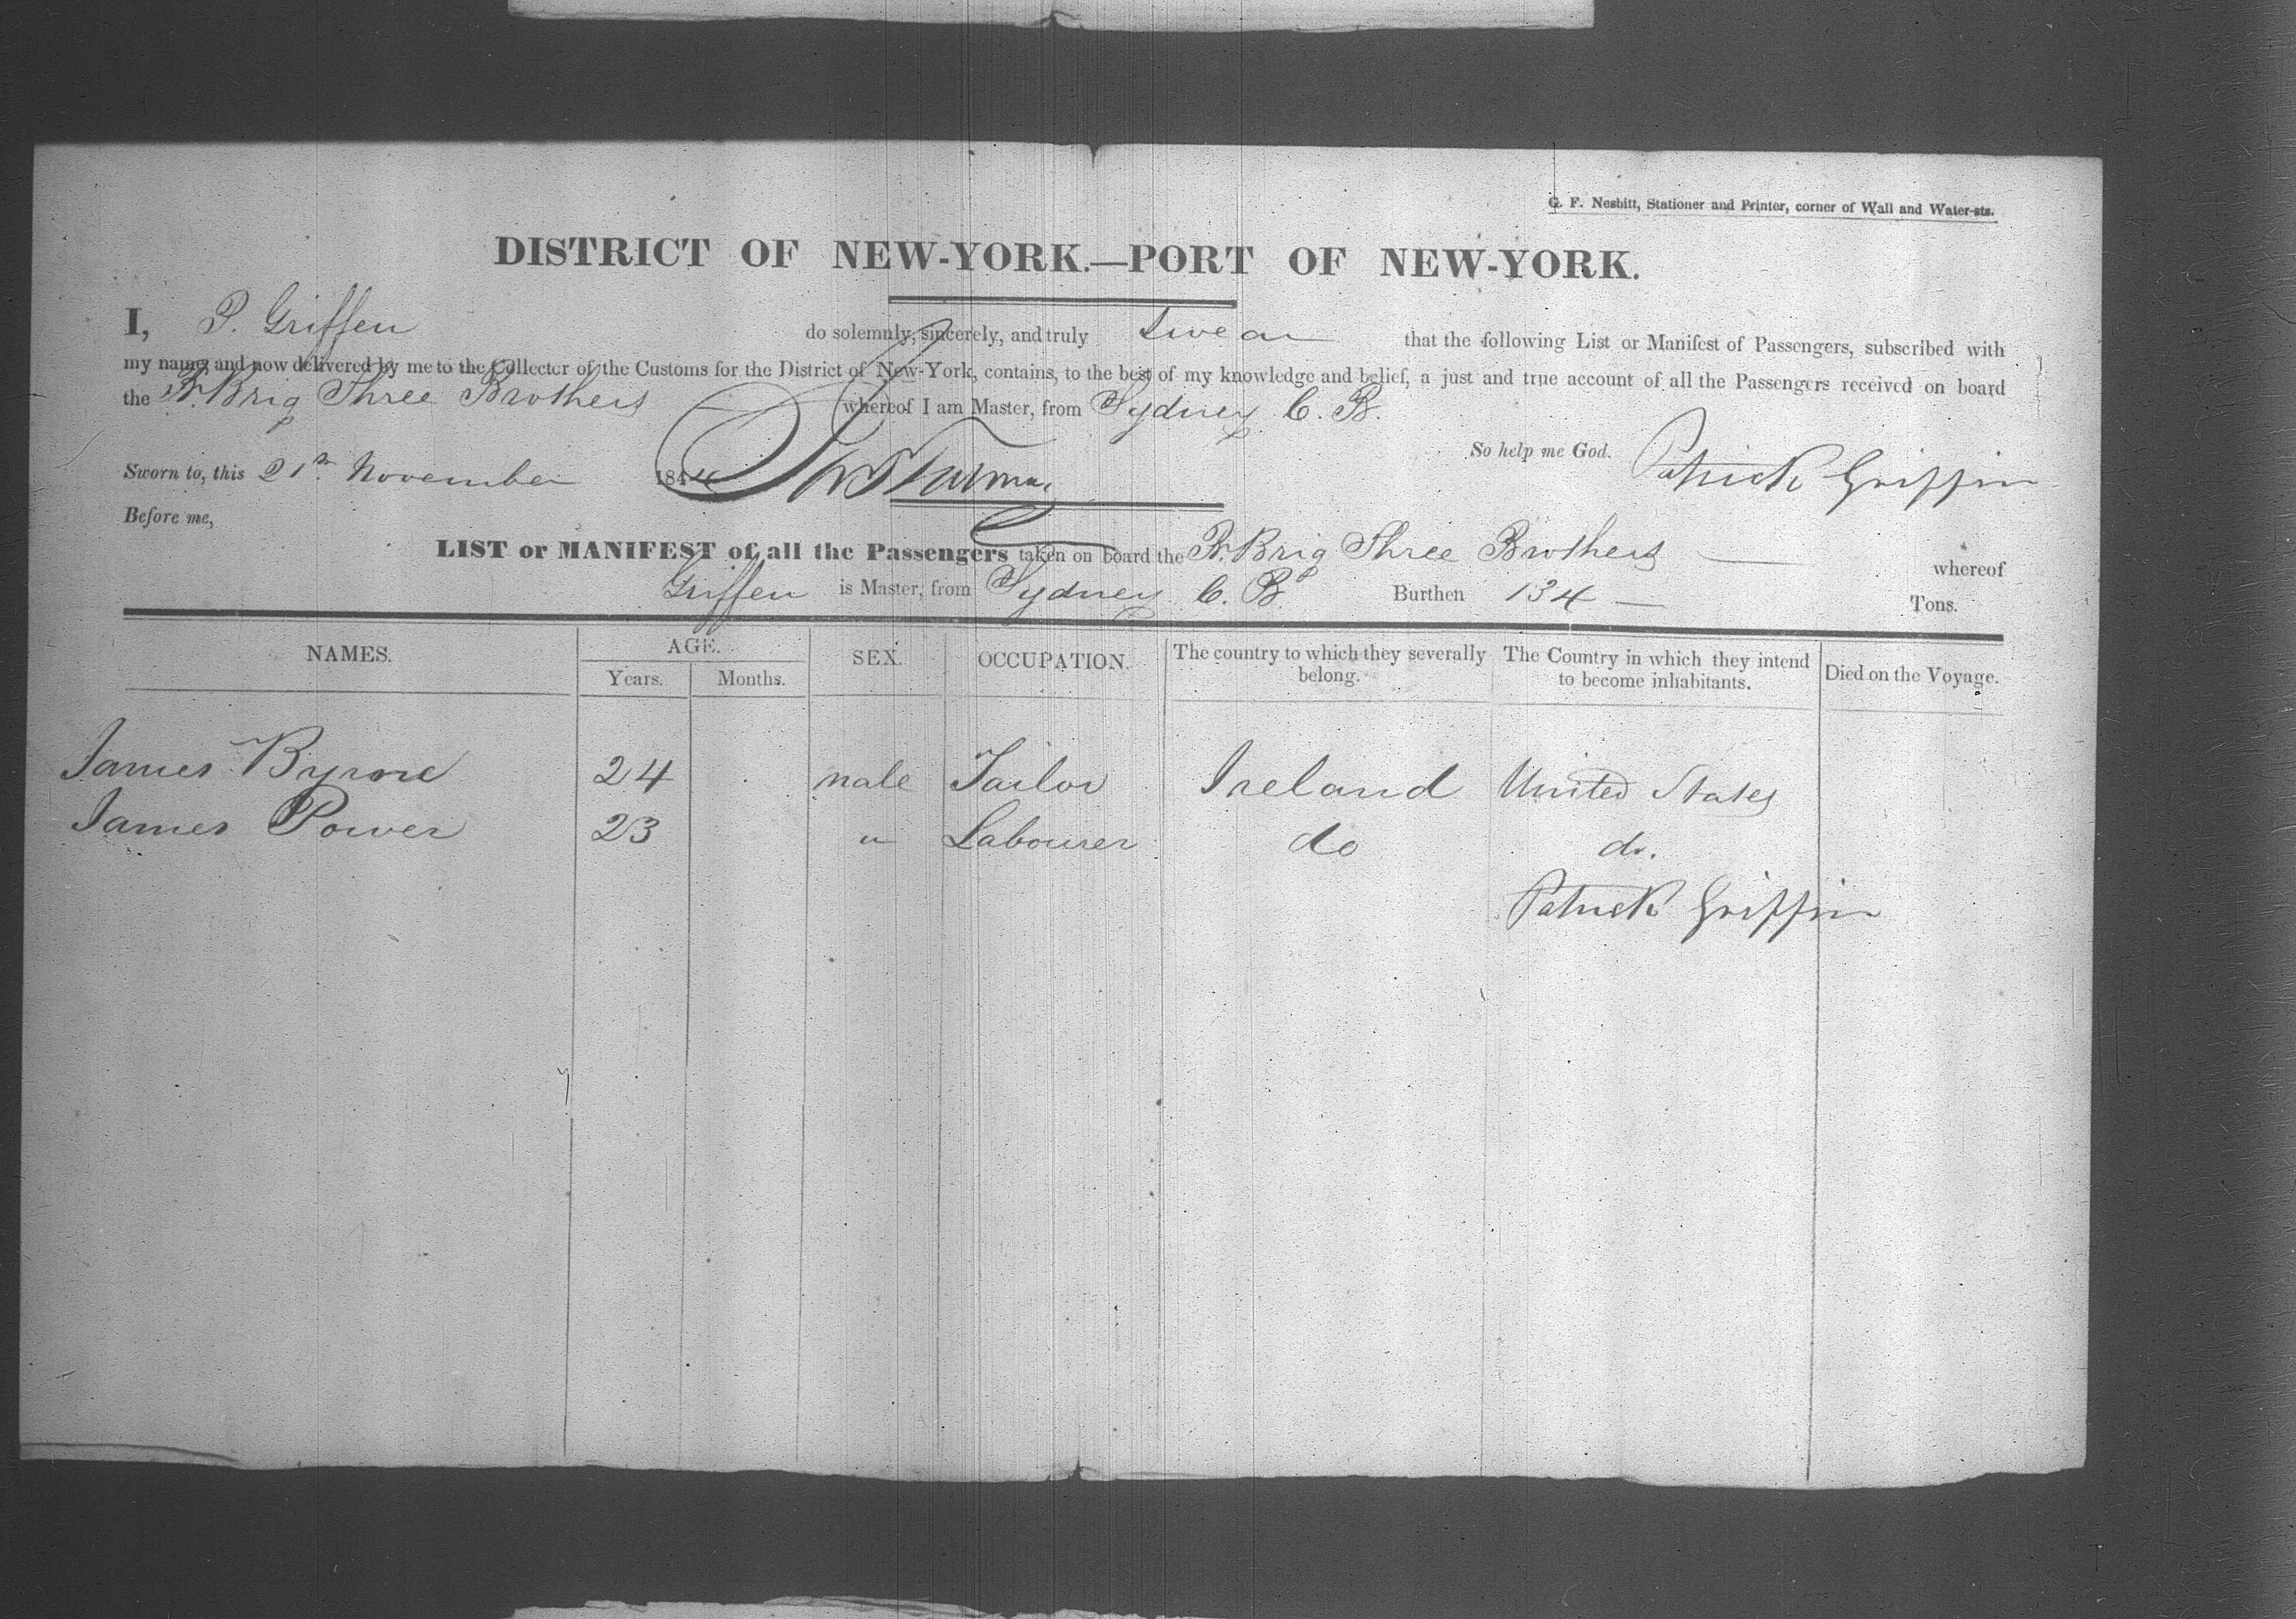 G. F. Nesbitt, Stationer and Printer, corner of Wall and Water-sts.
DISTRICT OF NEW-YORK.—PORT OF NEW-YORK.
I, P. Griffen do solemnly, sincerely, and truly Swear that the following List or Manifest of Passengers, subscribed with
my name, and now delivered by me to the Collector of the Customs for the District of New-York, contains, to the best of my knowledge and belief, a just and true account of all the Passengers received on board
the Br. Brig Three Brothers whereof I am Master, from Sydney C. B.
So help me God. Patrick Griffin
Sworn to, this 21st November 1844
Before me,
LIST or MANIFEST of all the Passengers taken on board the Br. Brig Three Brothers whereof
Griffen is Master, from Sydney C. B. Burthen 134 Tons.
NAMES. AGE. SEX. OCCUPATION. The country to which they severally belong. The Country in which they intend to become inhabitants. Died on the Voyage.
Years. Months.
James Byrne 24 male Tailor Ireland United States
James Power 23 " Labourer do do.
Patrick Griffin